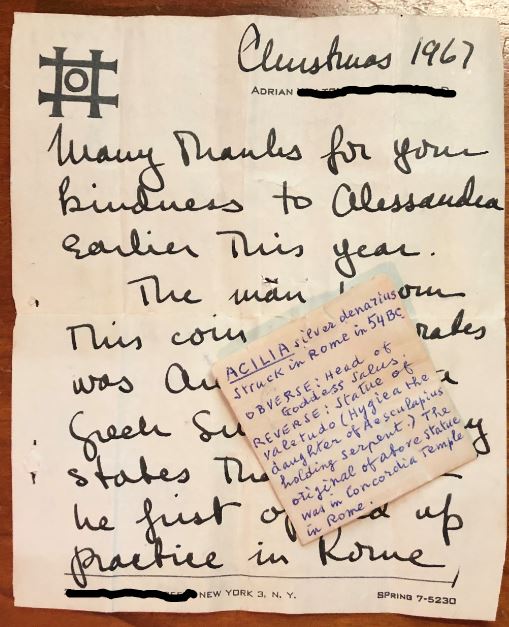 Christmas 1967
ADRIAN
Many Thanks for your
kindness to Alessandra
Earlier This year.
The man
This coin
was
Greek
states
he first up
practice in Rome
NEW YORK 3, N. Y.
SPRING 7-5230
ACILIA silver denarius
struck in Rome in 54 BC
OBVERSE: Head of
Goddess Salus.
REVERSE: Statue of
Valetudo (Hygiea the
daughter of Aesculapius
holding serpent.) The
original of above statue
was in Concordia Temple
in Rome.